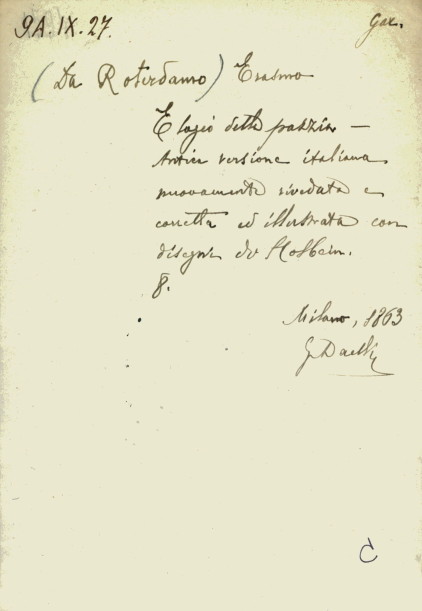 9A.IX.27. Gar.
(Da Roterdamo) Erasmo
Elogio della pazzia —
Antica versione italiana
nuovamente riveduta e
corretta ed illustrata con
disegni di Holbein.
8.
Milano, 1863
G. Daelli
C